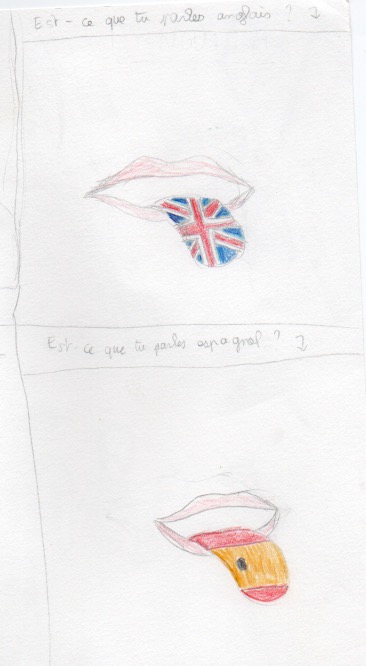 Est-ce que tu parles anglais ?
Est-ce que tu parles espagnol ?